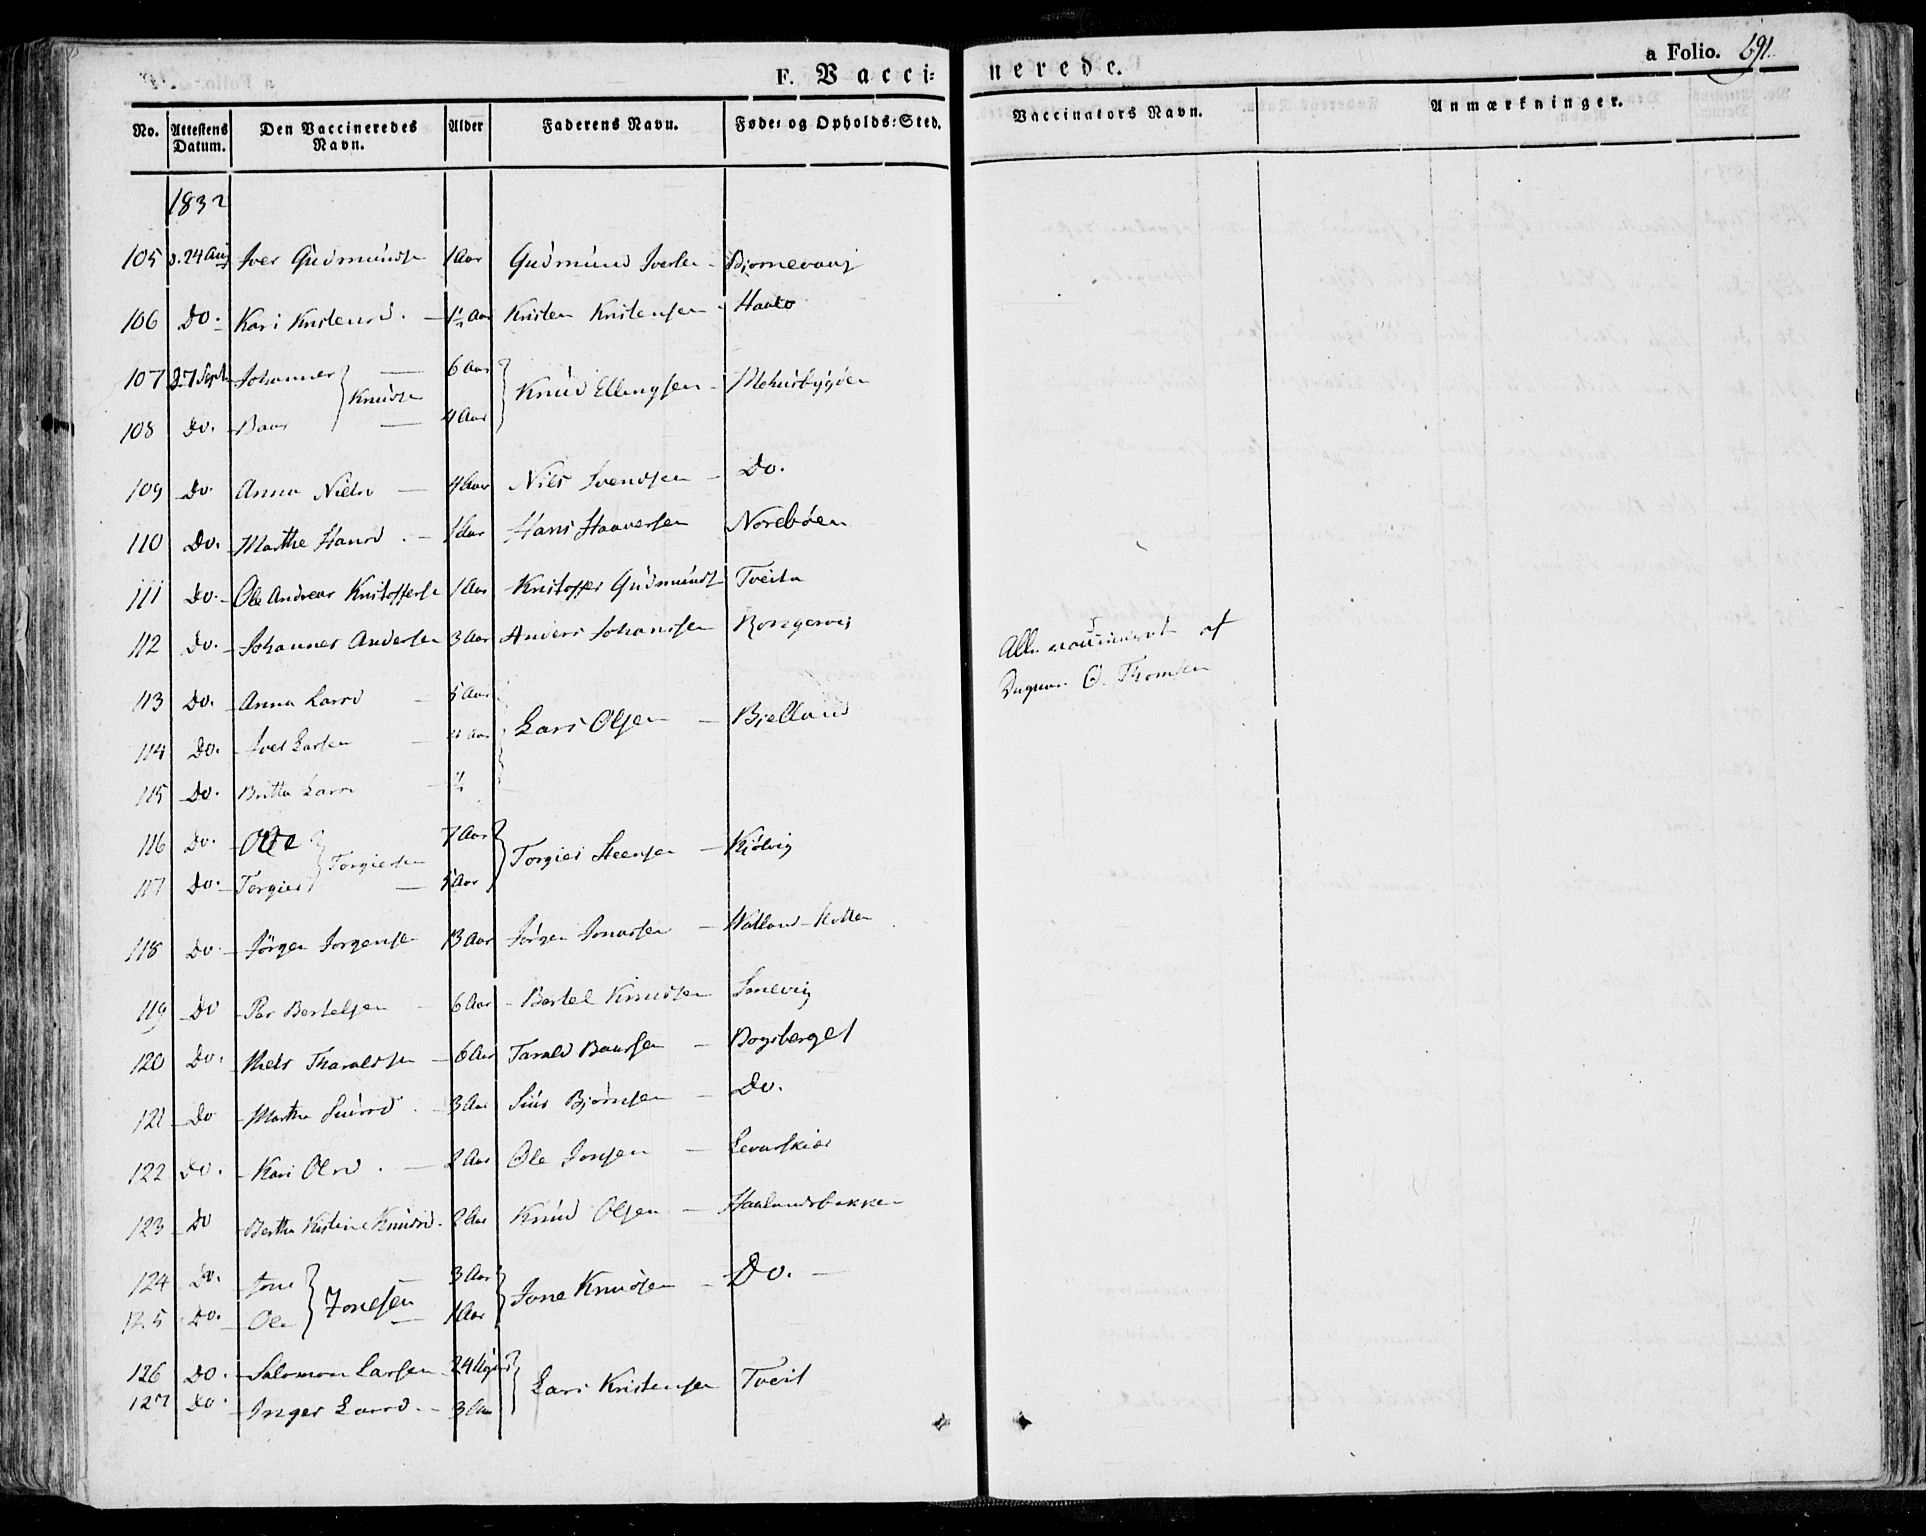 F. Vacci=
nerede.
a Folio. 691.
No. Attestens Datum. Den Vaccineredes Navn. Alder Faderens Navn. Føde= og Opholds=Sted. Vaccinators Navn. Anmærkninger.
1832
105 d. 24 Aug Iver Gudmundsen 1 Aar Gudmund Iversen
106 Do. Kari Kristensd. Aar Kristen Kristensen
107 27 Sept Johannes } Knudsen 6 Aar } Knud Ellengsen
108 Do. Baar 4 Aar
109 Do. Anna Nielsd 4 Aar Niels Svendsen Do.
110 Do. Marthe Hansd. 1 Aar Hans Haaversen Norebøen
111 Do. Ole Andreas Kristoffersen 1 Aar Kristoffer Gudmunds Tveita
112 Do. Johannes Andersen 3 Aar Anders Johansen
Alle vaccineret af
O. Thomsen
113 Do. Anna Larsd 5 Aar } Lars Olsen Bjelland
114 Do. Iver Larsen 4 Aar
115 Do. Britta Larsd
116 Do. Ole } Torgiersen 7 Aar } Torgier Steensen Kjølvig
117 Do. Torgier 5 Aar
118 Do. Jørgen Jørgensen 13 Aar Jørgen Jonassen
119 Do Per Bertelsen 6 Aar Bertel Knudsen
120 Do. Niels Tharaldsen 6 Aar Tarald Baarsen
121 Do Martha 3 Aar Bjørnsen Do.
122 Do. Kari Olsd. 2 Aar Ole Jonsen
123 Do Bertha Kistine Knudsd. 2 Aar Knud Olsen Haalandsbakken
124 Do. Jone } Jonesen 3 Aar } Jone Knudsen Do.
125 Do. Ole 1 Aar
126 Do. Salomon Larsen 24 Uger } Lars Kristensen Tveit
127 Do. Inger Larsd. 3 Aar